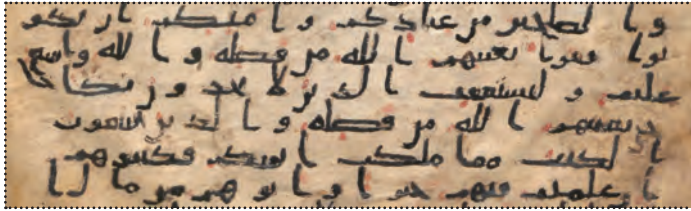 والصلحين من عبادكم وامئكم ان يكو
نوا فقرا يغنهم الله من فضله والله وسع
عليم وليستعفف الذين لا يجدون نكاحا
يغنيهم الله من فضله والذين يبتغون
الكتب مما ملكت ايمنكم فكتبوهم
ان علمتم فيهم خيرا واتوهم من مال ا